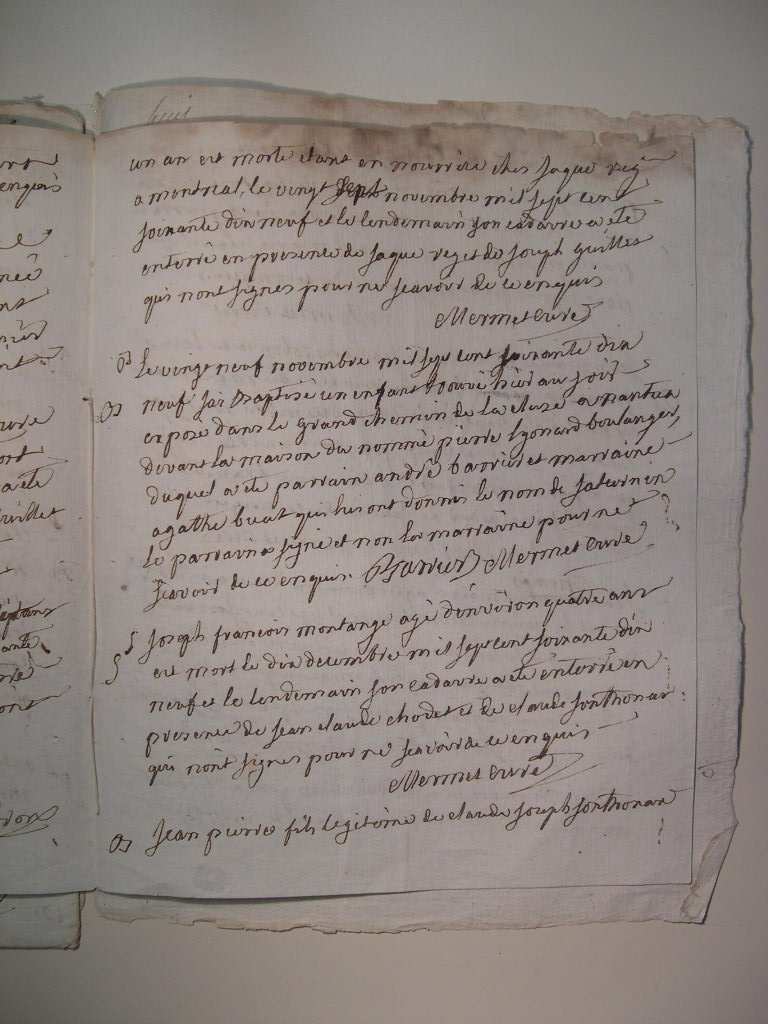 huit
un an est morte etant en nourrice ches jaque rey
a montreal, le vingt sept novembre mil sept cent
soixante dix neuf et le lendemain son cadavre a eté
enterré en presence de jaque rey et de joseph guillet
qui nont signes pour ne scavoir de ce enquis
Mermet curé
B Le vingt neuf novembre mil sept cent soixante dix
B neuf jai baptisé un enfant trouvé hier au soir
exposé dans le grand chemin de la cluse a nantua
devant la maison du nommé pierre lyonard boulanger,
duquel a eté parrain andré barrier et marraine
agathe buat qui lui ont donnés le nom de saturnin
le parrain a signé et non la marraine pour ne
scavoir de ce enquis. Barrier Mermet curé
S Joseph francois montange agé denviron quatre ans
S est mort le dix decembre mil sept cent soixante dix
neuf et le lendemain son cadavre a eté enterré en
presence de jean claude chodet et de claude sonthonax
qui nont signes pour ne scavoir de ce enquis
Mermet curé
B Jean pierre fils legitime de claude joseph sonthonax